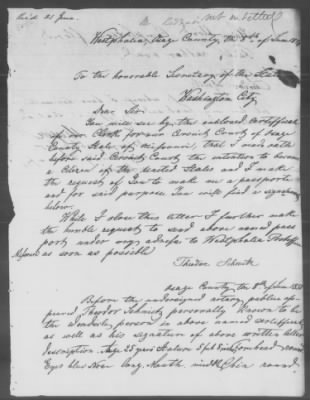 Rec'd 21 June.
Westphalia, Osage County, the 8th of June
To the honorable Secretary of the State
Washington City.
Dear Sir.
You will see by the enclosed Certificate
of our Clerk for our Circuit Court of Osage
County State of Missouri, that I made oath
before said Circuit Court the intention to become
a Citizen of the United States and I make
the request of You to make me a passport
and for said purpose You will find a signalement
below.
While I close this letter I further make
the humble request to send above named pass
port under my adress to Westphalia Postoffice
Missouri as soon as possible
Theodor Schmitz
Osage County, the 8th of June
Before the undersigned notary publice ap-
peared Theodor Schmitz personally known to be
the person in above named certificate
as well as his signature of above written letter
description Age 25 years Stature 5 feet Forehead round
Eyes blue Nose long Mouth middle Chin round.